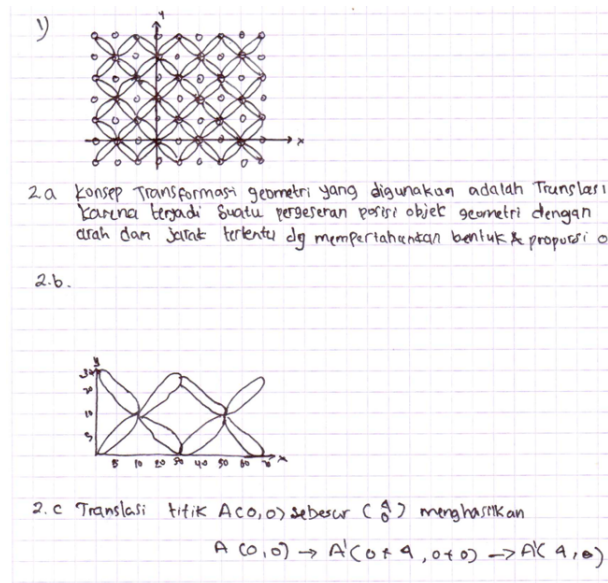 1)
y
x
2.a Konsep Transformasi geometri yang digunakan adalah Translasi
Karena terjadi suatu pergeseran posisi objek geometri dengan
arah dan jarak tertentu dg mempertahankan bentuk & proporsi o
2.b.
y
20
10
5
5 10 20 30 40 50 60 70 x
2.c Translasi titik A(0,0) sebesar (4 0) menghasilkan
A (0,0) → A'(0+4, 0+0) → A'(4,0)